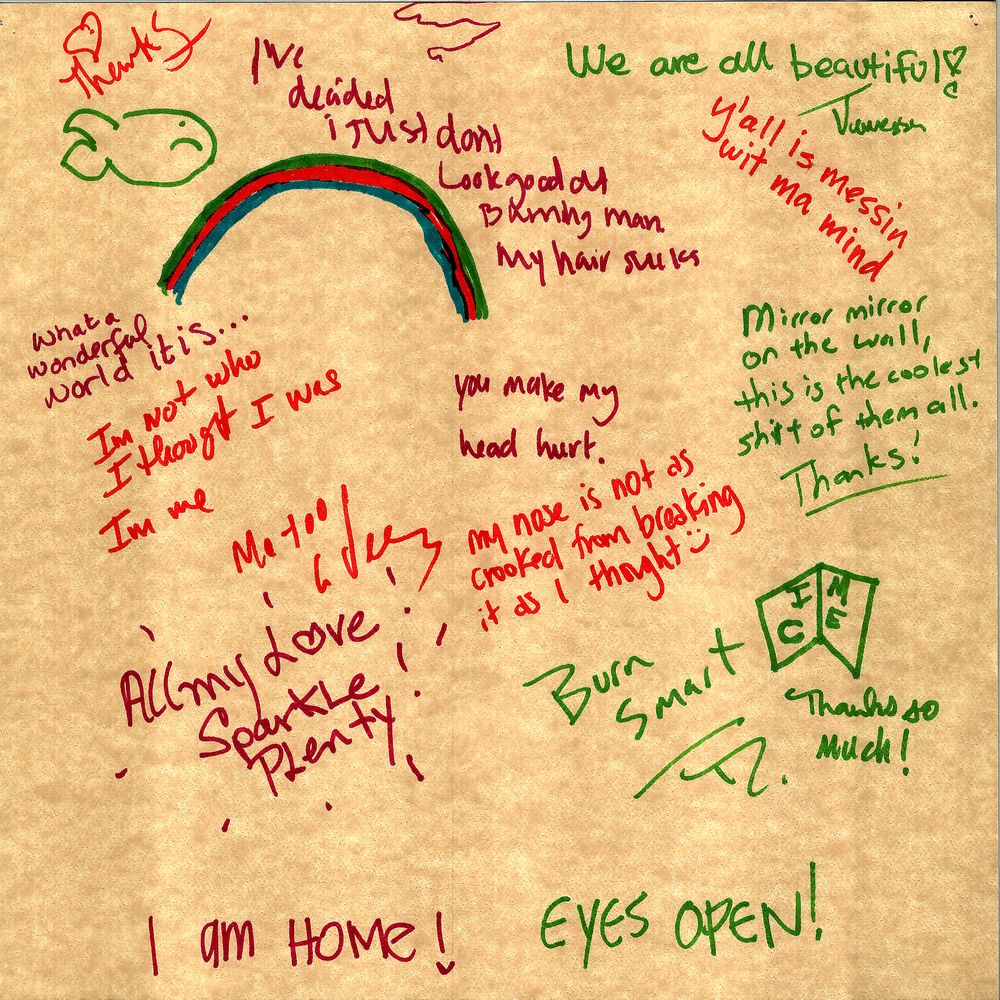 Thanks
I've
decided
i JUst dont
Look good at
Burning man
My hair sucks
We are all beautiful!
Vanessa
y'all is messin
wit ma mind
what a
wonderful
world it is...
Im not who
I thought I was
Im me
you make my
head hurt.
Mirror mirror
on the wall,
this is the coolest
shirt of them all.
Thanks!
Me too
my nose is not as
crooked from breaking
it as I thought
All my Love
Sparkle
Plenty
I C
ME
Burn
Smart
Thanks so
Much!
I am HOME!
EYES OPEN!